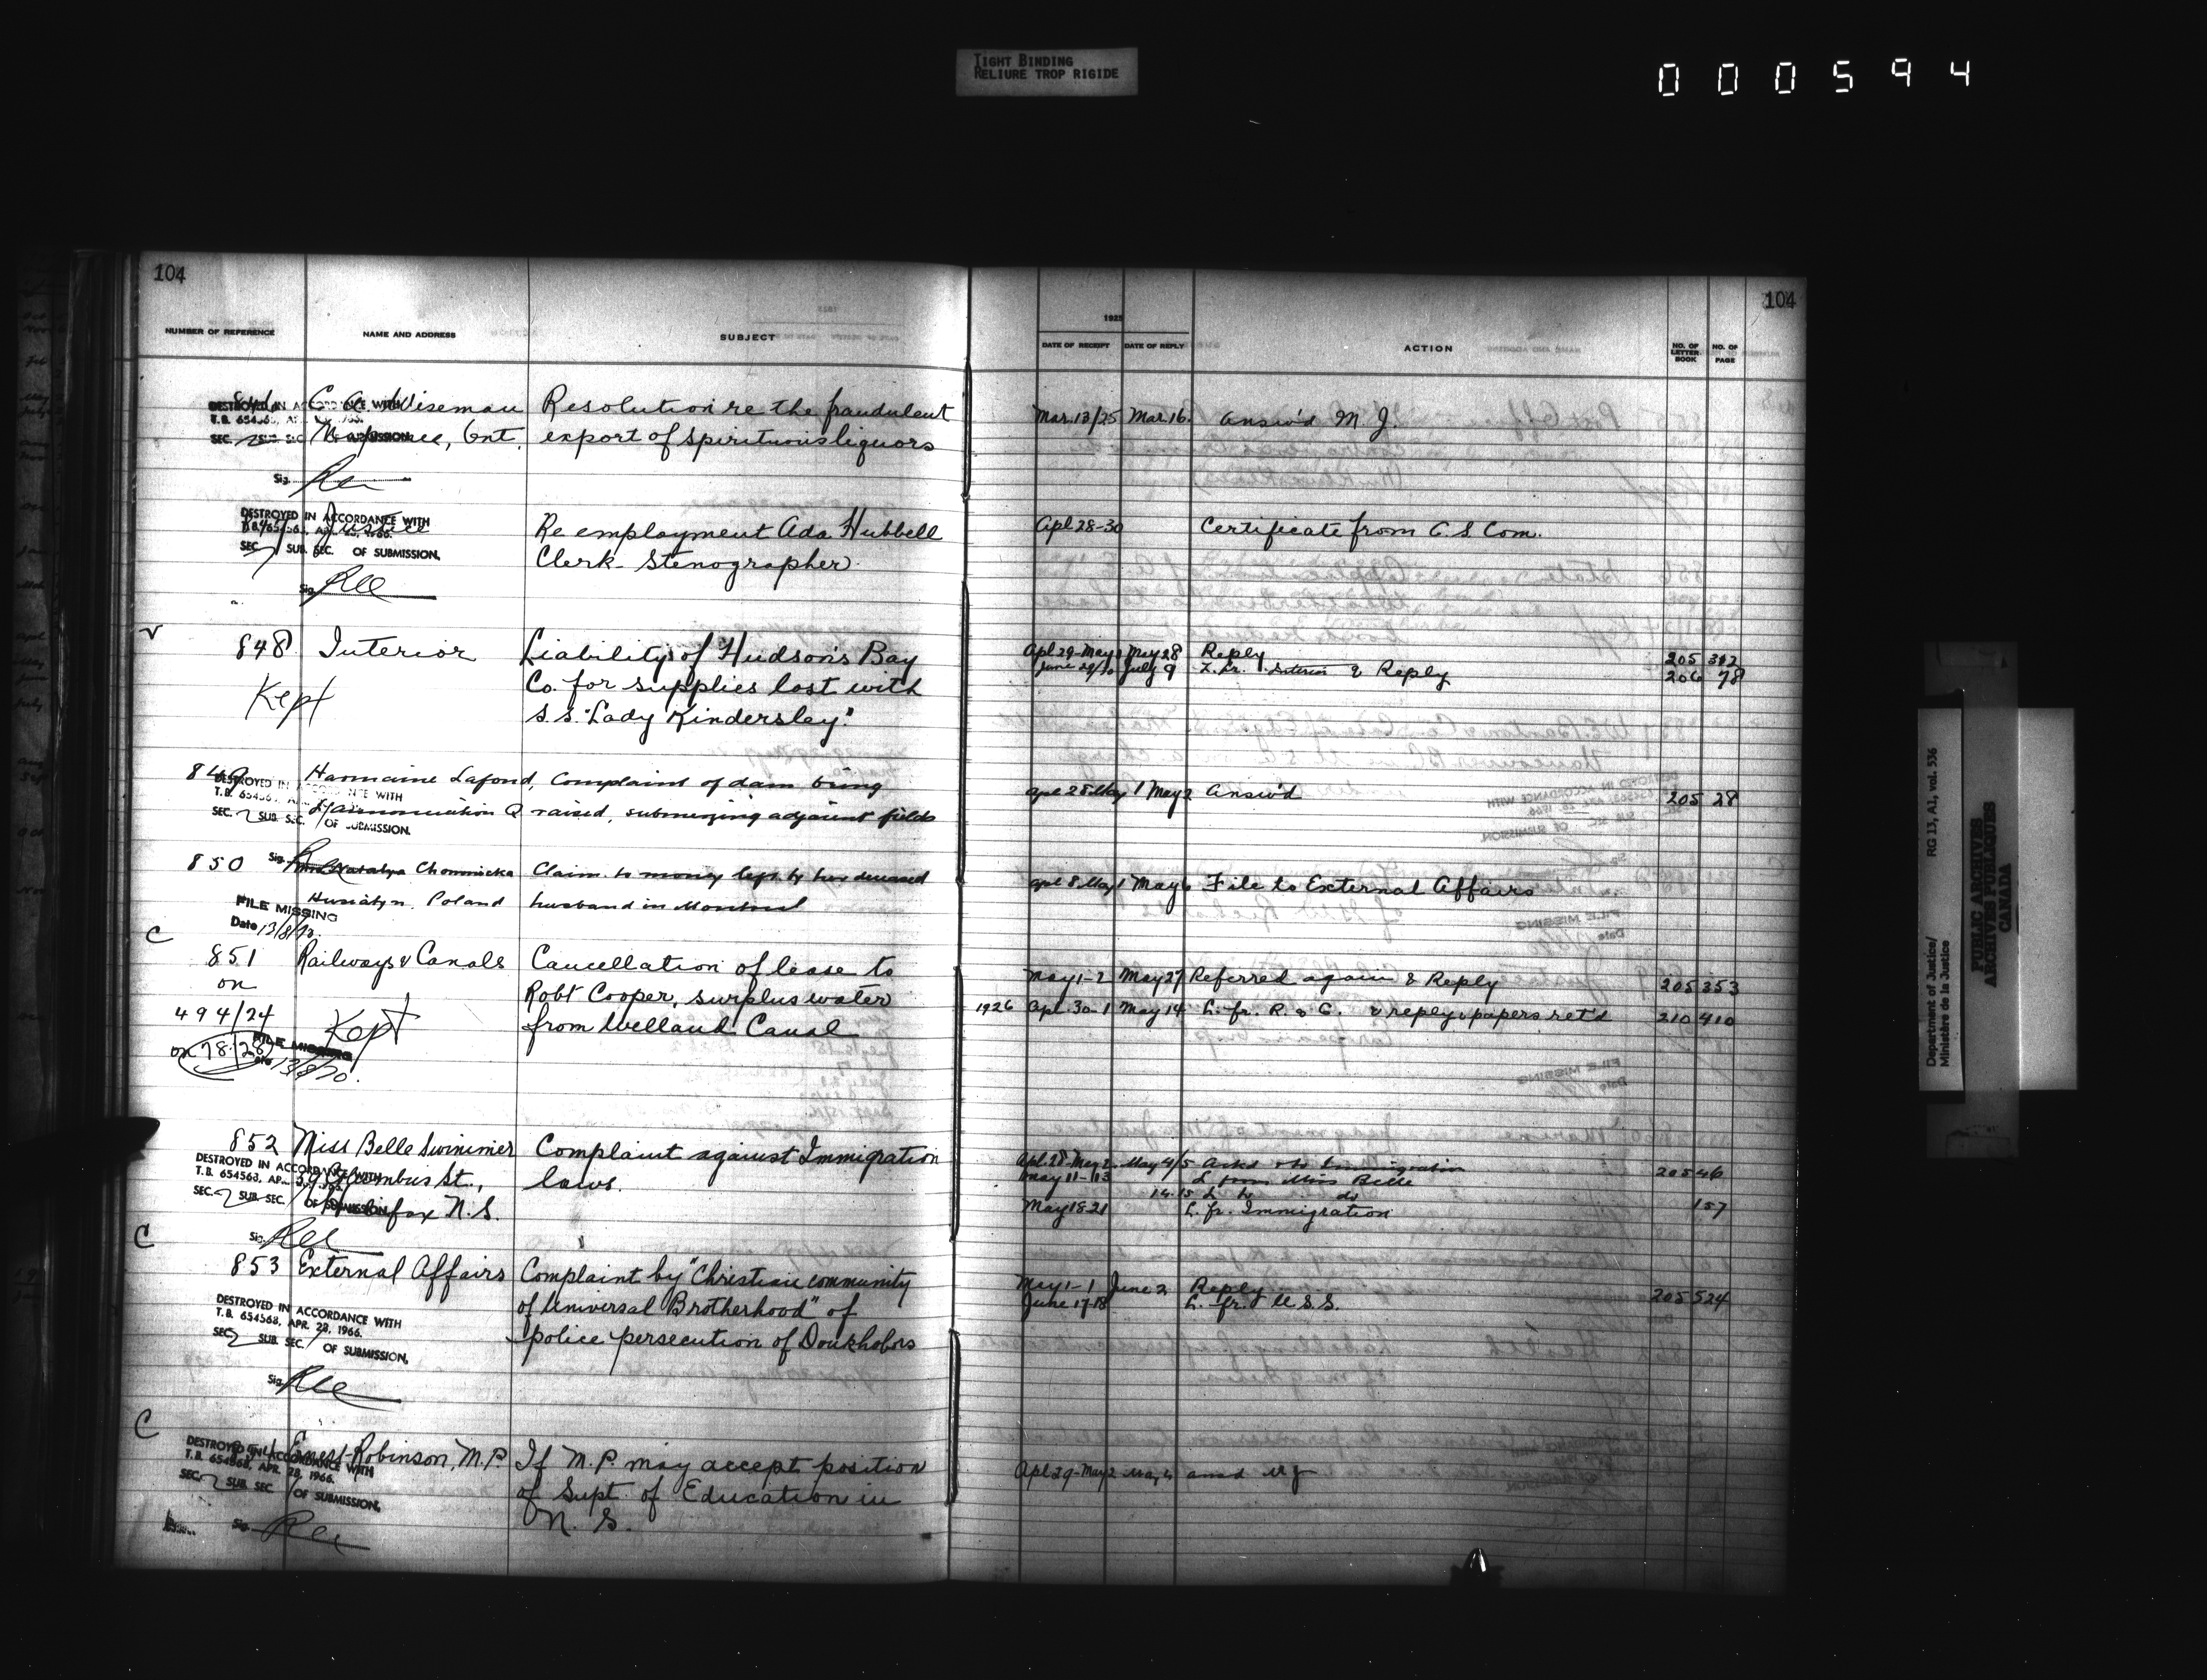 TIGHT BINDING
RELIURE TROP RIGIDE
000594
104
NUMBER OF REFERENCE
NAME AND ADDRESS
SUBJECT
Wiseman
Resolution re the fraudulent
Ont.
export of spirituous liquors
DESTROYED IN ACCORDANCE WITH
SEC. SUB. SEC. OF SUBMISSION.
Sig.
Justice
Re employment Ada Hubbell
Clerk-Stenographer
DESTROYED IN ACCORDANCE WITH
SEC. SUB. SEC. OF SUBMISSION.
Sig.
848 Interior
Liability of Hudson's Bay
Co. for supplies lost with
S.S. "Lady Kindersley."
Kept
849
Lafond,
Complaint of dam being
raised, submerging adjacent fields
DESTROYED IN ACCORDANCE WITH
SEC. SUB. SEC. OF SUBMISSION.
Sig.
850
Chomnicka
Claim to money left by her deceased
Poland
husband in Montreal
FILE MISSING
Date 13/8/70.
C
851 Railways & Canals
on
494/24
on 78/28
Cancellation of lease to
Robt Cooper, surplus water
from Welland Canal
Kept
FILE MISSING
Date 13/8/70.
852 Miss Belle Swimmer
Columbus St.,
Halifax N.S.
Complaint against Immigration
laws.
DESTROYED IN ACCORDANCE WITH
T.B. 654568, APR. 28, 1966.
SEC. SUB. SEC. OF SUBMISSION.
Sig.
C
853 External Affairs
Complaint by "Christian community
of Universal Brotherhood" of
police persecution of Doukhobors
DESTROYED IN ACCORDANCE WITH
T.B. 654568, APR. 28, 1966.
SEC. SUB. SEC. OF SUBMISSION,
Sig.
C
Ernest Robinson, M.P.
If M.P. may accept position
of Supt. of Education in
N. S.
DESTROYED IN ACCORDANCE WITH
T.B. 654568, APR. 28, 1966.
SEC. SUB. SEC. OF SUBMISSION,
Sig.
104
1925
DATE OF RECEIPT
DATE OF REPLY
ACTION
NO. OF LETTER BOOK
NO. OF PAGE
Mar. 13/25 Mar. 16. Answ'd M. J.
Apl 28-30 Certificate from C. S. Com.
Apl 29-May May 28 Reply 205 312
June 29/30 July 9 L. fr. Interior & Reply 206 78
Apl 28 May 1 May 2 Answ'd 205 28
Apl 8 May 1 May 6 File to External Affairs
May 1-2 May 27 Referred again & Reply 205 353
1926 Apl. 30-1 May 14 L. fr. R. & C. & reply & papers ret'd 210 410
Apl. 28-May 2 May 4/5 Ackd & to Immigration 205 46
May 11-13 L from Miss Belle
14-15 L to do
May 18-21 L. fr. Immigration 157
May 1-1 June 2 Reply 205 524
June 17-18 L. fr. U.S.S.
Apl 29-May 2 May 4 ansd MJ
Department of Justice/
Ministère de la Justice
RG 13, A1, vol. 536
PUBLIC ARCHIVES
ARCHIVES PUBLIQUES
CANADA